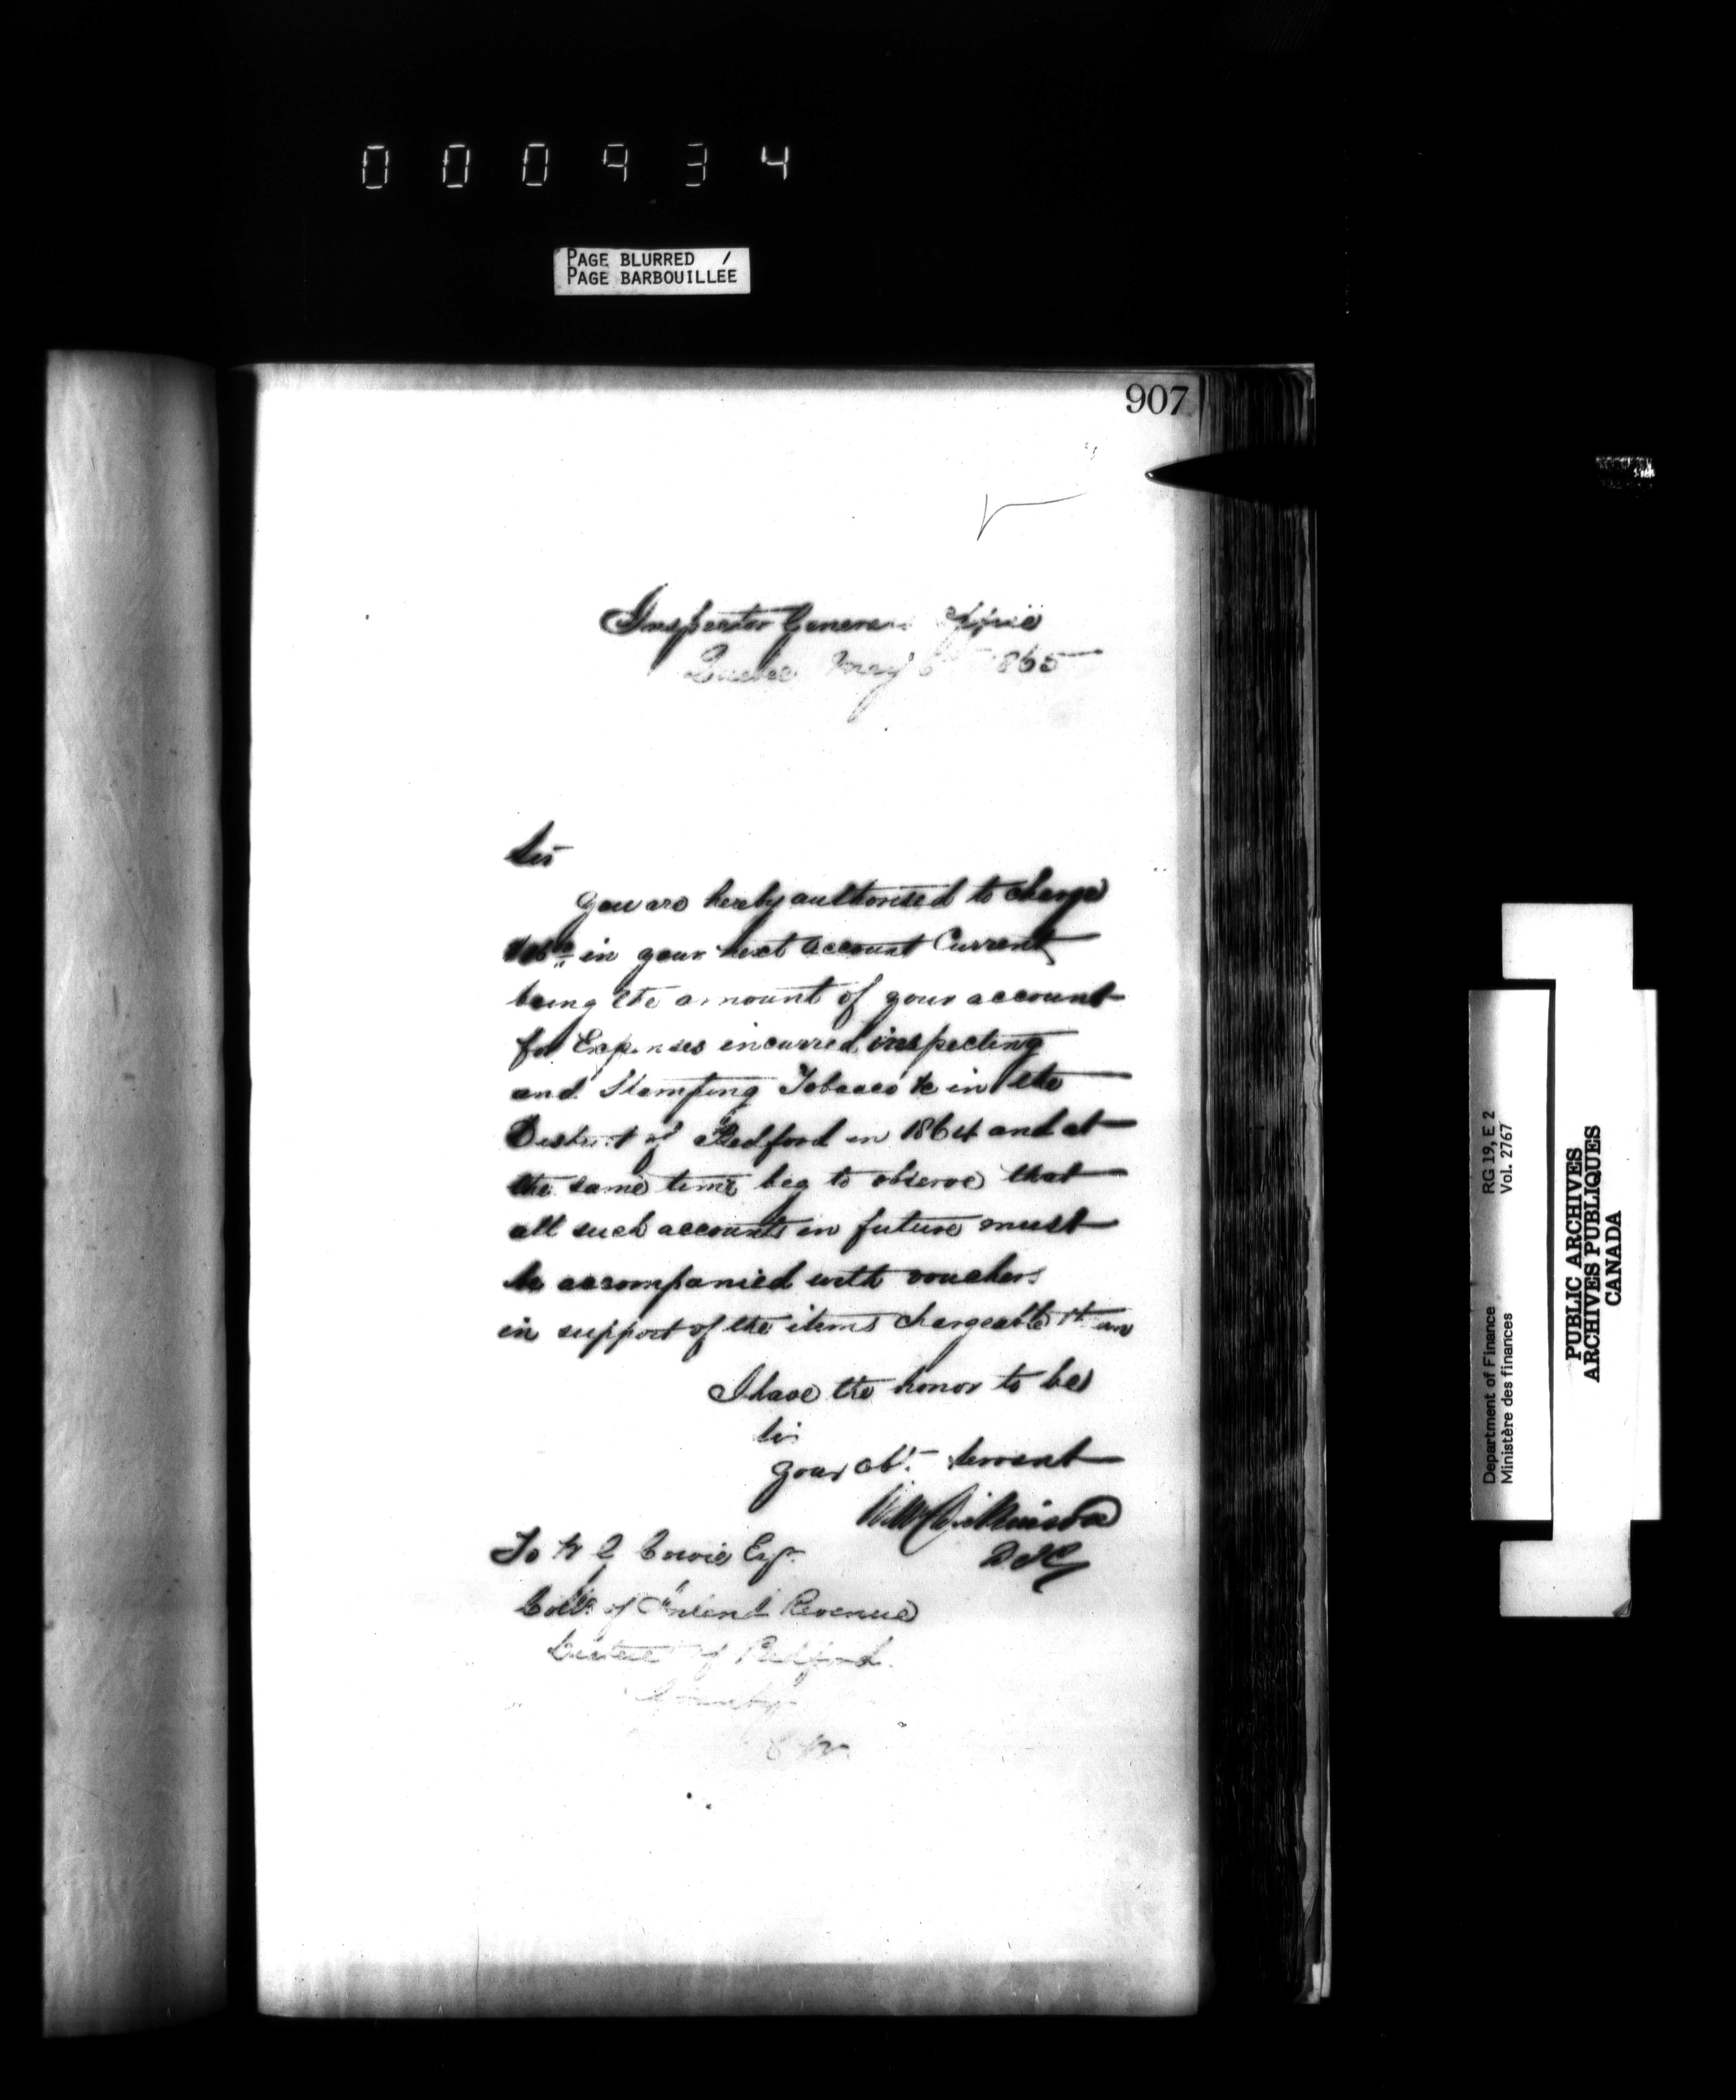 000934
PAGE BLURRED /
PAGE BARBOUILLEE
907
Inspector General Office
Quebec May 6 1865
Sir
You are hereby authorised to charge
in your next account Current
being the amount of your account
for Expenses incurred inspecting
and Stamping Tobacco &c in the
District of Bedford in 1864 and at
the same time beg to observe that
all such accounts in future must
be accompanied with vouchers
in support of the items chargeable
I have the honor to be
Sir
Your obt. Servant
Wm Dickinson
D I G
To Cowie Esq.
Collr of Inland Revenue
District of Bedford
Granby
Department of Finance RG 19, E 2
Ministère des finances Vol. 2767
PUBLIC ARCHIVES
ARCHIVES PUBLIQUES
CANADA